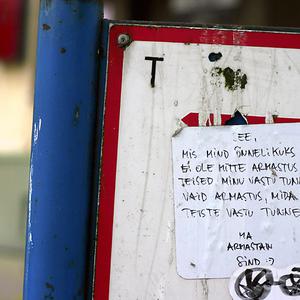 T
EE,
MIS MIND ÕNNELIKUKS
EI OLE MITTE ARMASTUS
TEISED MINU VASTU TUN
VAID ARMASTUS, MIDA
TEISTE VASTU TUNNE
MA
ARMASTAN
SIND :)